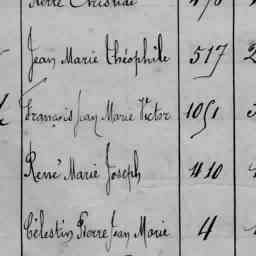 Pierre Christian 498
Jean Marie Théophile 517
François Jean Marie Victor 1051
René Marie Joseph 410
Célestin Pierre Jean Marie 4